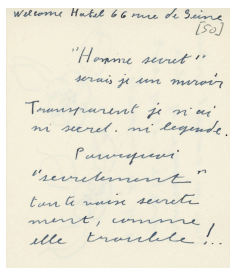 Welcome Hotel 66 rue de Seine
[50]
"Homme secret"
serais je un miroir
Transparent je n'ai
ni secret. ni legende.
Pourquoi
"secretement"
toute voix secrete
ment, comme
elle trouble !..